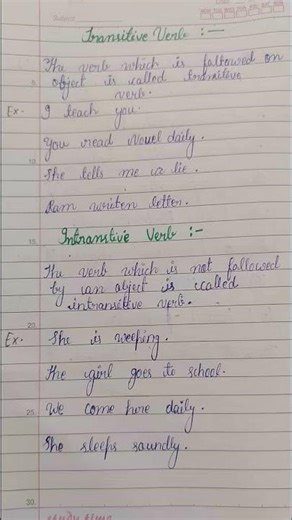 Transitive Verb :—
The verb which is followed on
object is called transitive
verb.
Ex - I teach you.
You read Novel daily.
She tells me a lie.
Ram written letter.
Intransitive Verb :-
The verb which is not followed
by an object is called
intransitive verb.
Ex - She is weeping.
The girl goes to school.
We come here daily.
She sleeps soundly.
study time